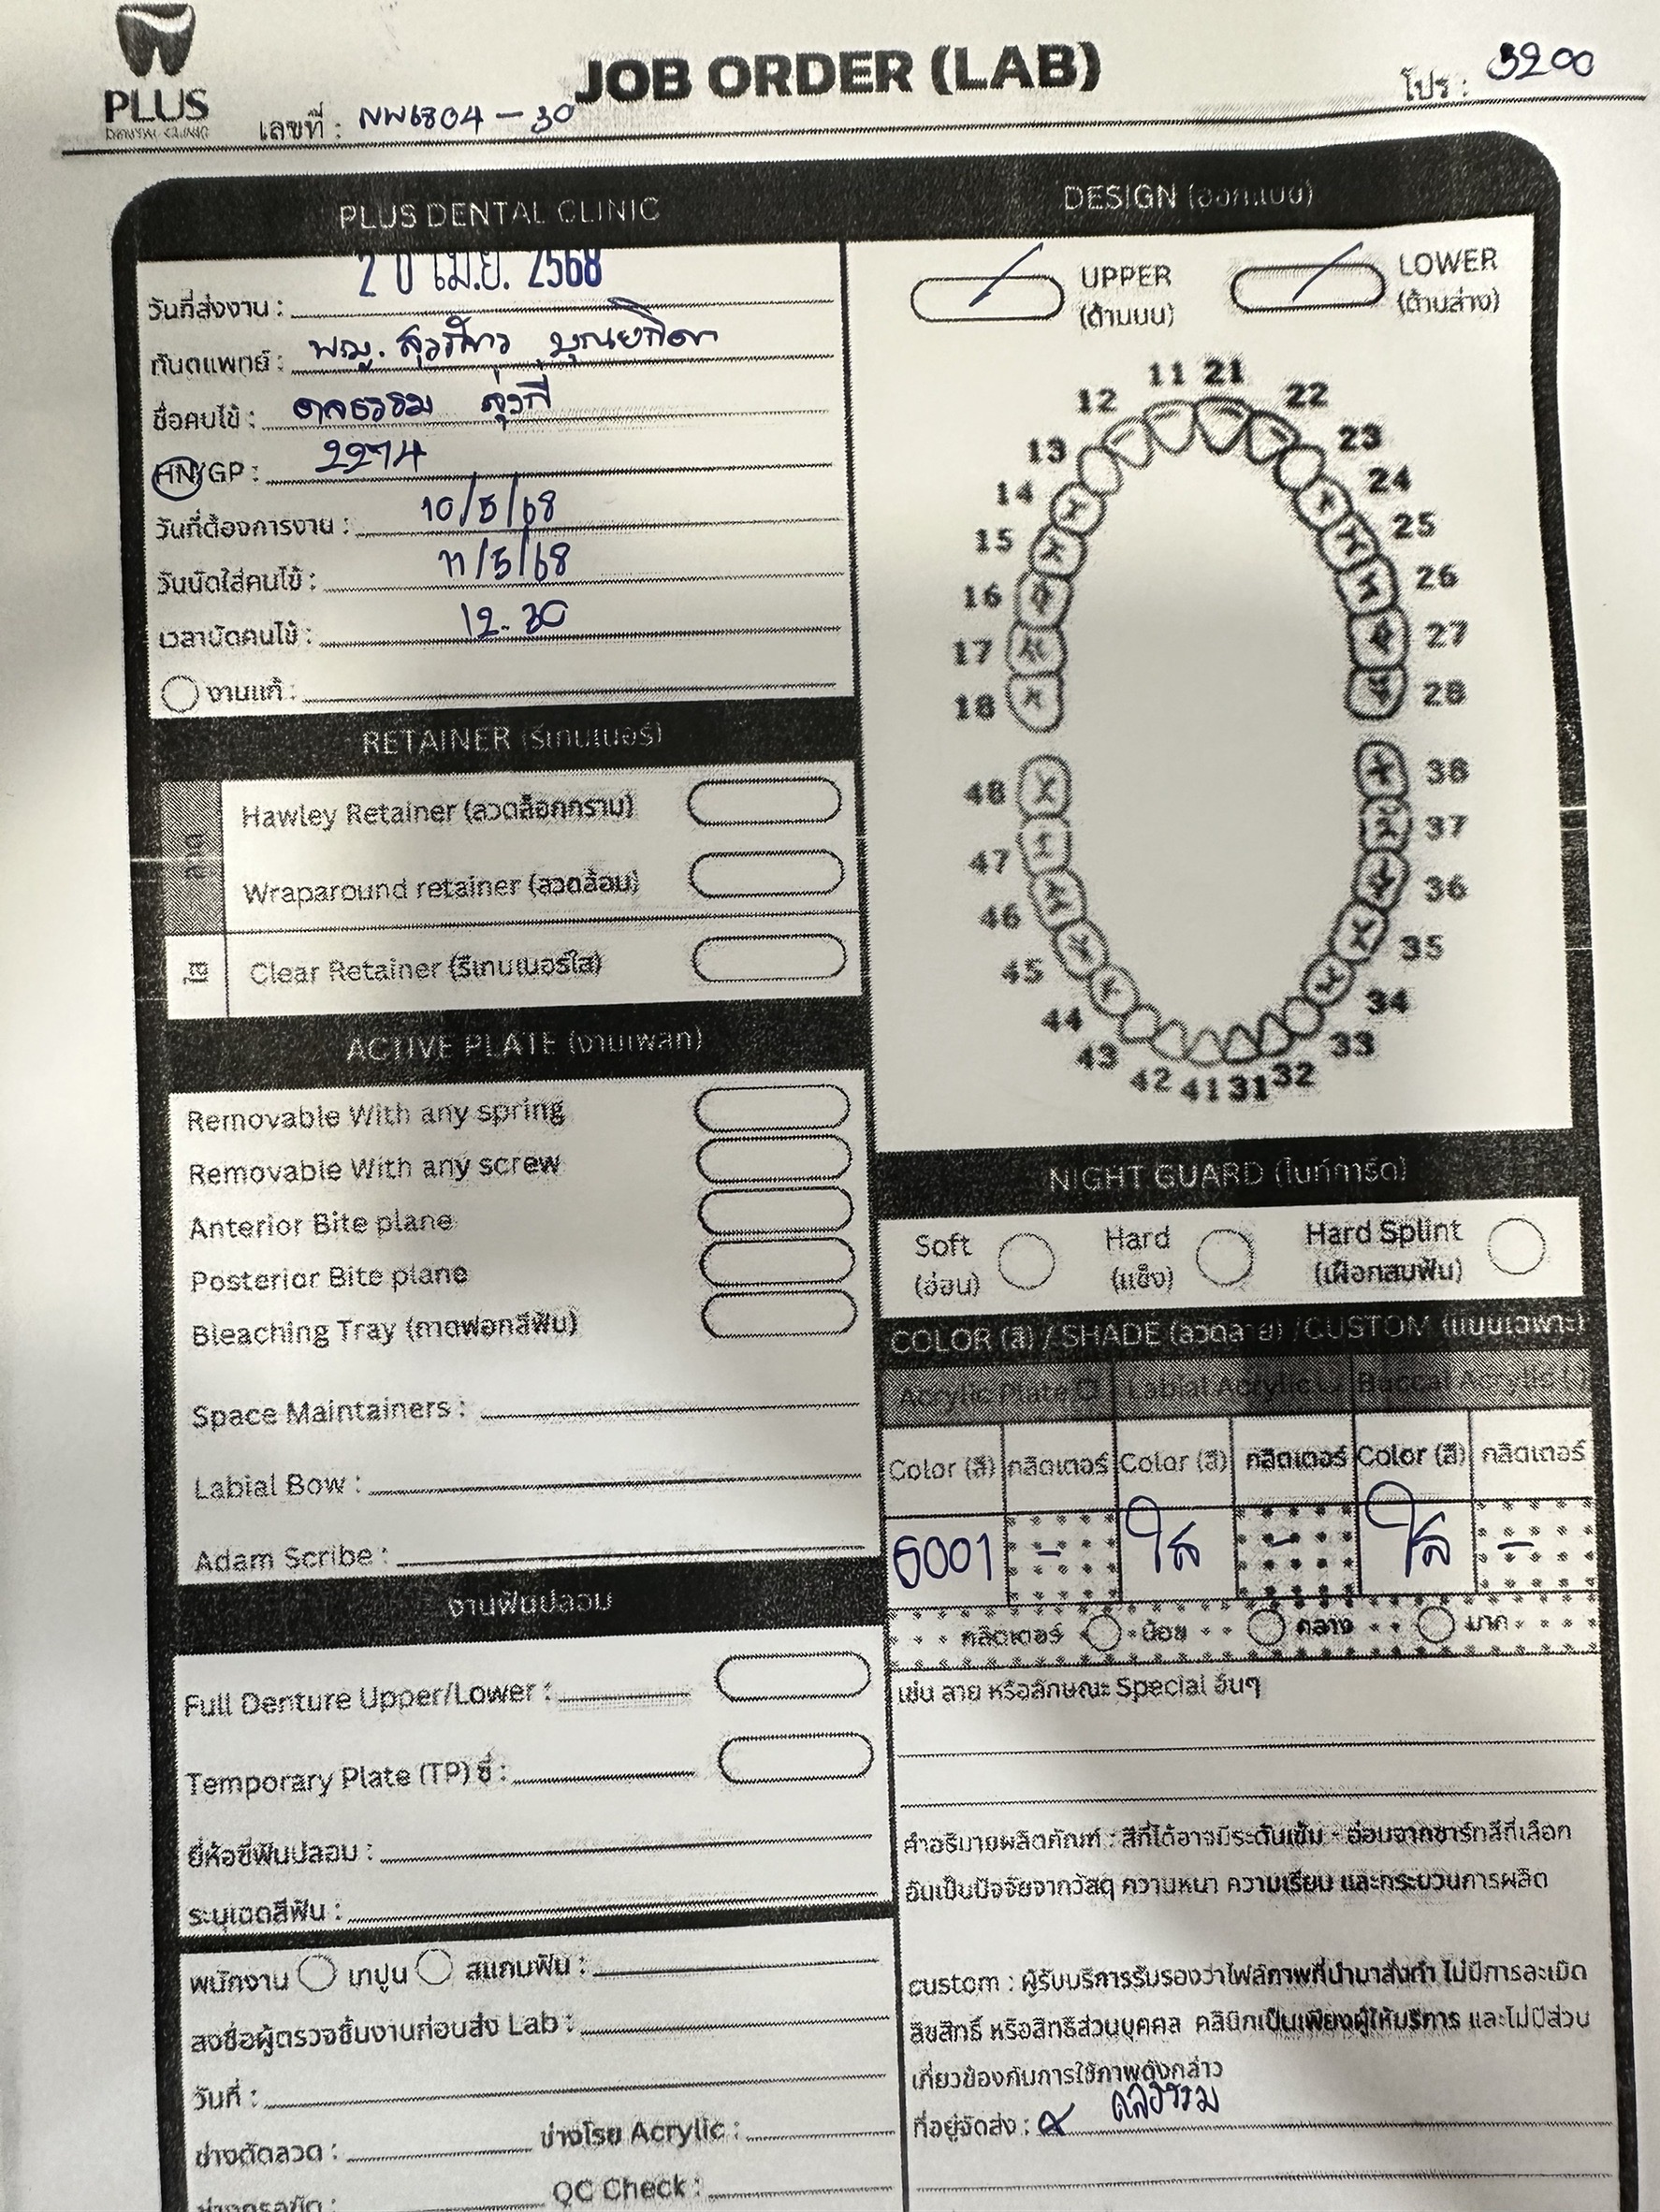 PLUS
DENTAL CLINIC
JOB ORDER (LAB)
เลขที่ : NW6804-30
โปร : 3200
PLUS DENTAL CLINIC
วันที่ส่งงาน : 20 เม.ย. 2568
ทันตแพทย์ : ทพญ.
ชื่อคนไข้ :
HN/GP : 2274
วันที่ต้องการงาน : 10/5/68
วันนัดใส่คนไข้ : 11/5/68
เวลานัดคนไข้ : 12.30
งานแก้ :
RETAINER (รีเทนเนอร์)
ลวด
Hawley Retainer (ลวดล็อกกราม)
Wraparound retainer (ลวดล้อม)
ใส
Clear Retainer (รีเทนเนอร์ใส)
ACTIVE PLATE (งานเพลท)
Removable With any spring
Removable With any screw
Anterior Bite plane
Posterior Bite plane
Bleaching Tray (ถาดฟอกสีฟัน)
Space Maintainers :
Labial Bow :
Adam Scribe :
งานฟันปลอม
Full Denture Upper/Lower :
Temporary Plate (TP) ซี่ :
ยี่ห้อซี่ฟันปลอม :
ระบุเฉดสีฟัน :
พนักงาน เทปูน สแกนฟัน :
ลงชื่อผู้ตรวจชิ้นงานก่อนส่ง Lab :
วันที่ :
ช่างดัดลวด : ช่างโรย Acrylic :
ช่างกรอขัด : QC Check :
DESIGN (ออกแบบ)
UPPER
(ด้านบน)
LOWER
(ด้านล่าง)
11 21
12 22
13 23
14 24
15 25
16 26
17 27
18 28
48 38
47 37
46 36
45 35
44 34
43 33
42 41 31 32
NIGHT GUARD (ไนท์การ์ด)
Soft
(อ่อน)
Hard
(แข็ง)
Hard Splint
(เฝือกสบฟัน)
COLOR (สี) / SHADE (ลวดลาย) /CUSTOM (แบบเฉพาะ)
Acrylic Plate Labial Acrylic Buccal Acrylic
Color (สี) กลิตเตอร์ Color (สี) กลิตเตอร์ Color (สี) กลิตเตอร์
6001 - ใส - ใส -
กลิตเตอร์ น้อย กลาง มาก
เช่น ลาย หรือลักษณะ Special อื่นๆ
คำอธิบายผลิตภัณฑ์ : สีที่ได้อาจมีระดับเข้ม - อ่อนจากชาร์ทสีที่เลือก
อันเป็นปัจจัยจากวัสดุ ความหนา ความเรียบ และกระบวนการผลิต
custom : ผู้รับบริการรับรองว่าไฟล์ภาพที่นำมาสั่งทำ ไม่มีการละเมิด
ลิขสิทธิ์ หรือสิทธิส่วนบุคคล คลินิกเป็นเพียงผู้ให้บริการ และไม่มีส่วน
เกี่ยวข้องกับการใช้ภาพดังกล่าว
ที่อยู่จัดส่ง :